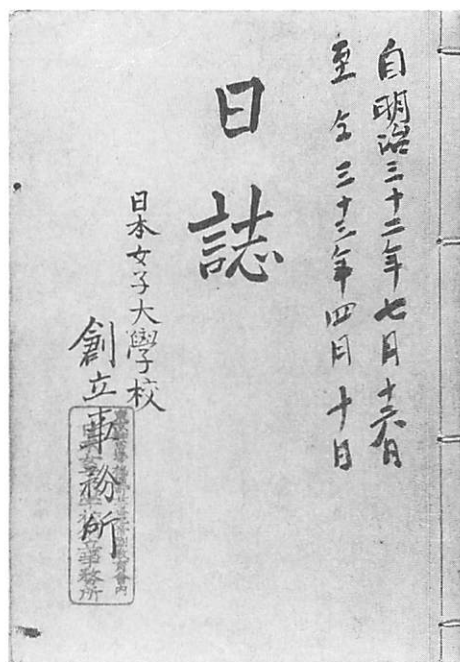 自明治三十二年七月十六日
至仝三十三年四月十日
日誌
日本女子大學校
創立事務所
教育會内
創立事務所